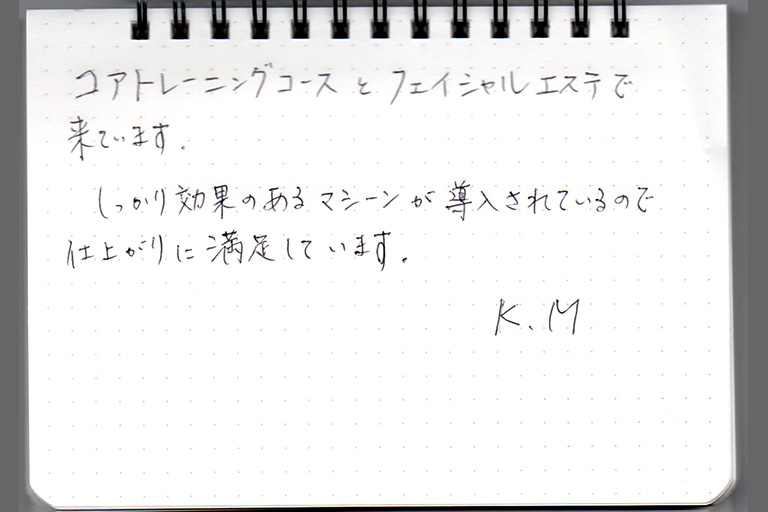 コアトレーニングコースとフェイシャルエステで
来ています。
しっかり効果のあるマシーンが導入されているので
仕上がりに満足しています。
K.M